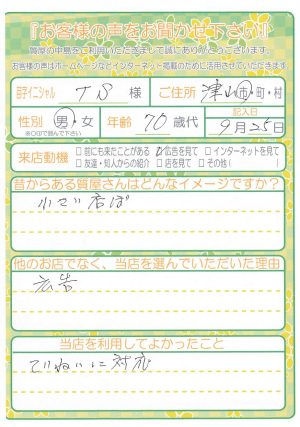 『お客様の声をお聞かせ下さい』
質屋の中島をご利用いただきまして誠にありがとうございます。
お客様の声はホームページなどインターネット掲載のために活用させていただきます。
苗字イニシャル T S 様 ご住所 津山 市・町・村
性別 男・女 年齢 70 歳代 記入日 9月25日
※○印で囲んで下さい
来店動機 □ 前にも来たことがある ☑ 広告を見て □ インターネットを見て
□ 友達・知人からの紹介 □ 店を見て □ その他（ ）
昔からある質屋さんはどんなイメージですか？
小さい店ぽ
他のお店でなく、当店を選んでいただいた理由
広告
当店を利用してよかったこと
ていねいに対応